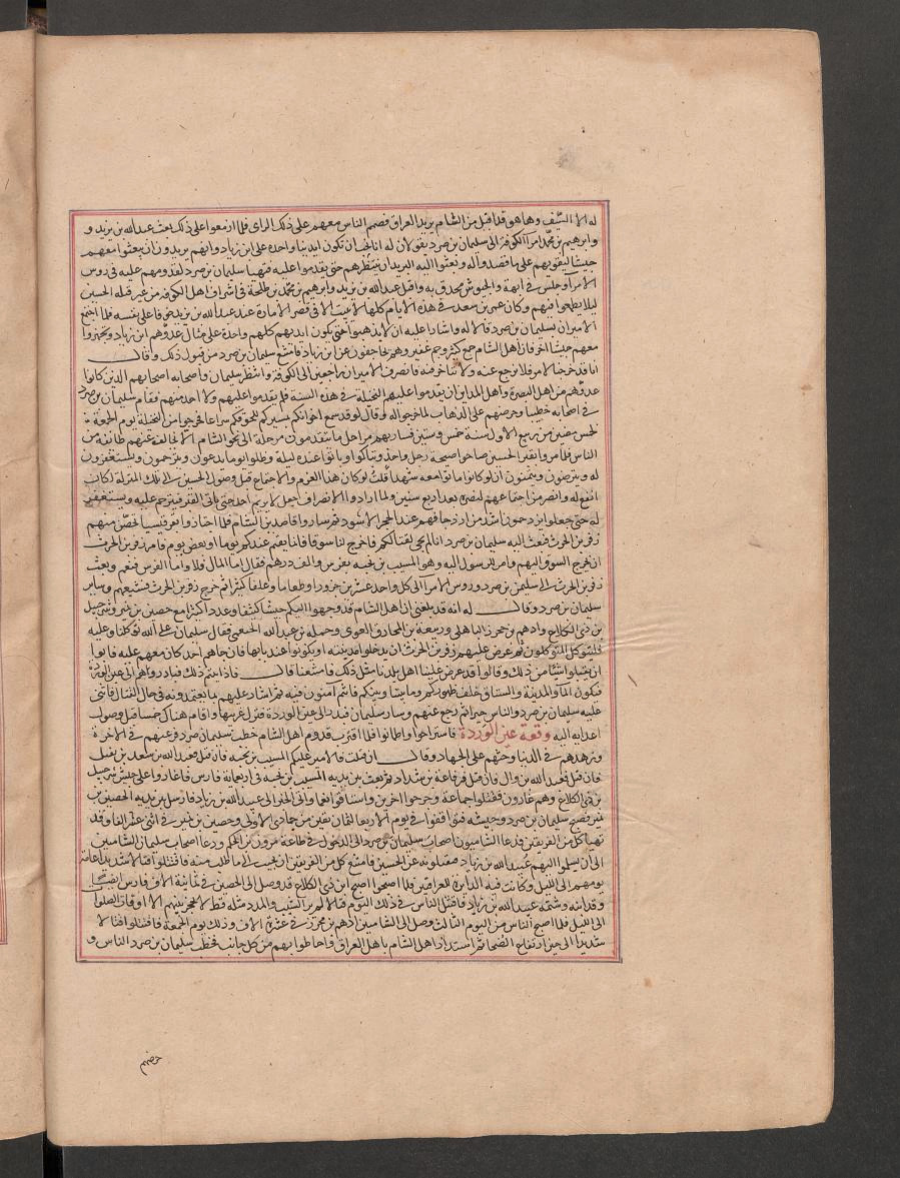 له الا السيف وها هو قد اقبل من الشام يريد العراق فصمم الناس معهم على ذلك الراى فلما ازمعوا على ذلك بعث عبد الله بن يزيد و
وابرهيم بن محمد امرآ الكوفة الى سليمان بن صرد يقولان له انا نحب ان تكون ايدينا واحدة على ابن زياد وانهم يريدون ان يبعثوا معهم
جيشا ليقويهم على ما قصدوا له وبعثوا اليه البريد ان ينتظرهم حتى يقدموا عليه فتهيا سليمان بن صرد لقدومهم عليه فى روس
الامرآ وجلس فى ابهة والجيوش محدقة به واقبل عبد الله بن يزيد وابرهيم بن محمد بن طلحة فى اشراف اهل الكوفة من غير قتلة الحسين
ليلا يطمعوا فيهم وكان عمر بن سعد فى هذه الايام كلها لا يبيت الا فى قصر الامارة عند عبد الله بن يزيد خوفا على نفسه فلما اجتمع
الاميران بسليمان بن صرد قالا له واشارا عليه ان لا يذهبوا حتى تكون ايديهم كلهم واحدة على قتال عدوهم ابن زياد ويجهزوا
معهم جيشا اخر فان اهل الشام جمع كثير وجم غفير وهم يحاجفون عن ابن زياد فامتنع سليمان بن صرد من قبول ذلك وقال
انا قد خرجنا لامر فلا نرجع عنه ولا نتاخر فيه فانصرف الاميران راجعين الى الكوفة وانتظر سليمان واصحابه اصحابهم الذين كانوا
عدوهم من اهل البصرة واهل المداين ان يقدموا عليهم النخيلة فى هذه السنة فلم يقدموا عليهم ولا احد منهم فقام سليمان بن صرد
فى اصحابه خطيبا وحرضهم على الذهاب لما خرجوا له وقال لو قد سمع اخوانكم بمسيركم للحقوكم سراعا فخرجوا من النخيلة يوم الجمعة
لخمس مضين من ربيع الاول سنة خمس وستين فسار بهم مراحل ما يتقدمون مرحلة الى نحو الشام الا تخالف عنهم طائفة من
الناس فلما مروا بقبر الحسين صاحوا صيحة رجل واحد وتباكوا وباتوا عنده ليلة وظلوا يوما يدعون ويترحمون ويستغفرون
له ويترضون ويتمنون ان لو كانوا ماتوا معه شهدا قلت لو كان هذا العزم والاجتماع قبل وصول الحسين الى تلك المنزلة لكان
انفع له وانصر من اجتماعهم لنصرته بعد اربع سنين ولما ارادوا الانصراف جعل لا يريم احد حتى ياتى القبر فيترحم عليه ويستغفر
له حتى جعلوا يزدحمون اشد من ازدحامهم عند الحجر الاسود ثم ساروا قاصدين الشام فلما اجتازوا بقرقيسيا تحصن منهم
زفر بن الحرث فبعث اليه سليمان بن صرد انا لم نجى لقتالكم فاخرج لنا سوقا فانا نقيم عندكم يوما او بعض يوم فامر زفر بن الحرث
ان يخرج السوق اليهم وامر للرسول اليه وهو المسيب بن نجبة بفرس والف درهم فقال اما المال فلا واما الفرس فنعم وبعث
زفر بن الحرث الى سليمن بن صرد وروس الامرآ الى كل واحد عشرين جزورا وطعاما وعلفا كثيرا ثم خرج زفر بن الحرث فشيعهم وساير
سليمان بن صرد وقال له انه قد بلغنى ان اهل الشام قد وجهوا اليكم جيشا كثيفا وعددا كثيرا مع حصين بن نمير وشرحبيل
بن ذى الكلاع وادهم بن محرز الباهلى وربيعة بن المخارق الغنوى وحملة بن عبد الله الخثعمى فقال سليمان على الله توكلنا وعليه
فليتوكل المتوكلون ثم عرض عليهم زفر بن الحرث ان يدخلوا مدينته او يكونوا عند بابها فان جاهم احد كان معهم عليه فابوا
ان يقبلوا شيئا من ذلك وقالوا قد عرض علينا اهل بلدنا مثل ذلك فامتنعنا قال فاذا ابيتم ذلك فبادروهم الى عين الوردة
فيكون المآ والمدينة والستاق خلف ظهوركم وما بيننا وبينكم فانتم آمنون فيه ثم اشار عليهم بما يعتمدونه فى حال القتال فاثنى
عليه سليمان بن صرد والناس خيرا ثم رجع عنهم وسار سليمان فبدر الى عين الوردة فنزل غربيها واقام هناك خمسا قبل وصول
اعدايه اليه وقعة عين الوردة فاستراحوا واطمانوا فلما اقترب قدوم اهل الشام خطب سليمان بن صرد فرغبهم فى الاخرة
وزهدهم فى الدنيا وحثهم على الجهاد وقال ان قتلت فالامير عليكم المسيب بن نجبة فان قتل فعبد الله بن سعد بن نفيل
فان قتل فعبد الله بن وال فان قتل فرفاعة بن شداد ثم بعث بين يديه المسيب بن نجبة فى اربعماية فارس فاغاروا على جيش شرحبيل
بن ذى الكلاع وهم غارون فقتلوا جماعة وجرحوا اخرين واستاقوا نعما واتى الخبر الى عبيد الله بن زياد فارسل بين يديه الحصين بن
نمير فصبح سليمان بن صرد وجيشه فتواقفوا فى يوم الاربعا لثمان بقين من جمادى الاولى وحصين بن نمير فى اثنى عشر الفا وقد
تهيا كل من الفريقين فدعا الشاميون اصحاب سليمان بن صرد الى الدخول فى طاعة مرون بن الحكم ودعا اصحاب سليمان الشاميين
الى ان يسلموا اليهم عبيد الله بن زياد فيقتلونه عن الحسين فامتنع كل من الفريقين ان يجيب الى ما طلب منه فاقتتلوا قتالا شديدا عامة
يومهم الى الليل وكانت فيه الدايرة للعراقيين فلما اصبحوا اصبح ابن ذى الكلاع قد وصل الى الحصين فى ثمانية الاف فارس ايضا
وقد انبه وشتمه عبيد الله بن زياد فاقتتل الناس فى ذلك اليوم قتالا لم ير الشيب والمرد مثله قط لا يحجز بينهم الا اوقات الصلوا
الى الليل فلما اصبح الناس من اليوم الثالث وصل الى الشاميين ادهم بن محرز فى عشرة الاف وذلك يوم الجمعة فاقتتلوا قتالا
شديدا الى حين ارتفاع الضحا ثم استدار اهل الشام باهل العراق واحاطوا بهم من كل جانب فخطب سليمان بن صرد الناس و
حرضهم